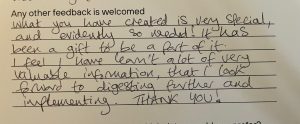 Any other feedback is welcomed
What you have created is very special,
and evidently so needed! It has
been a gift to be a part of it.
I feel I have learn't a lot of very
valuable information, that I look
forward to digesting further and
implementing. THANK YOU!